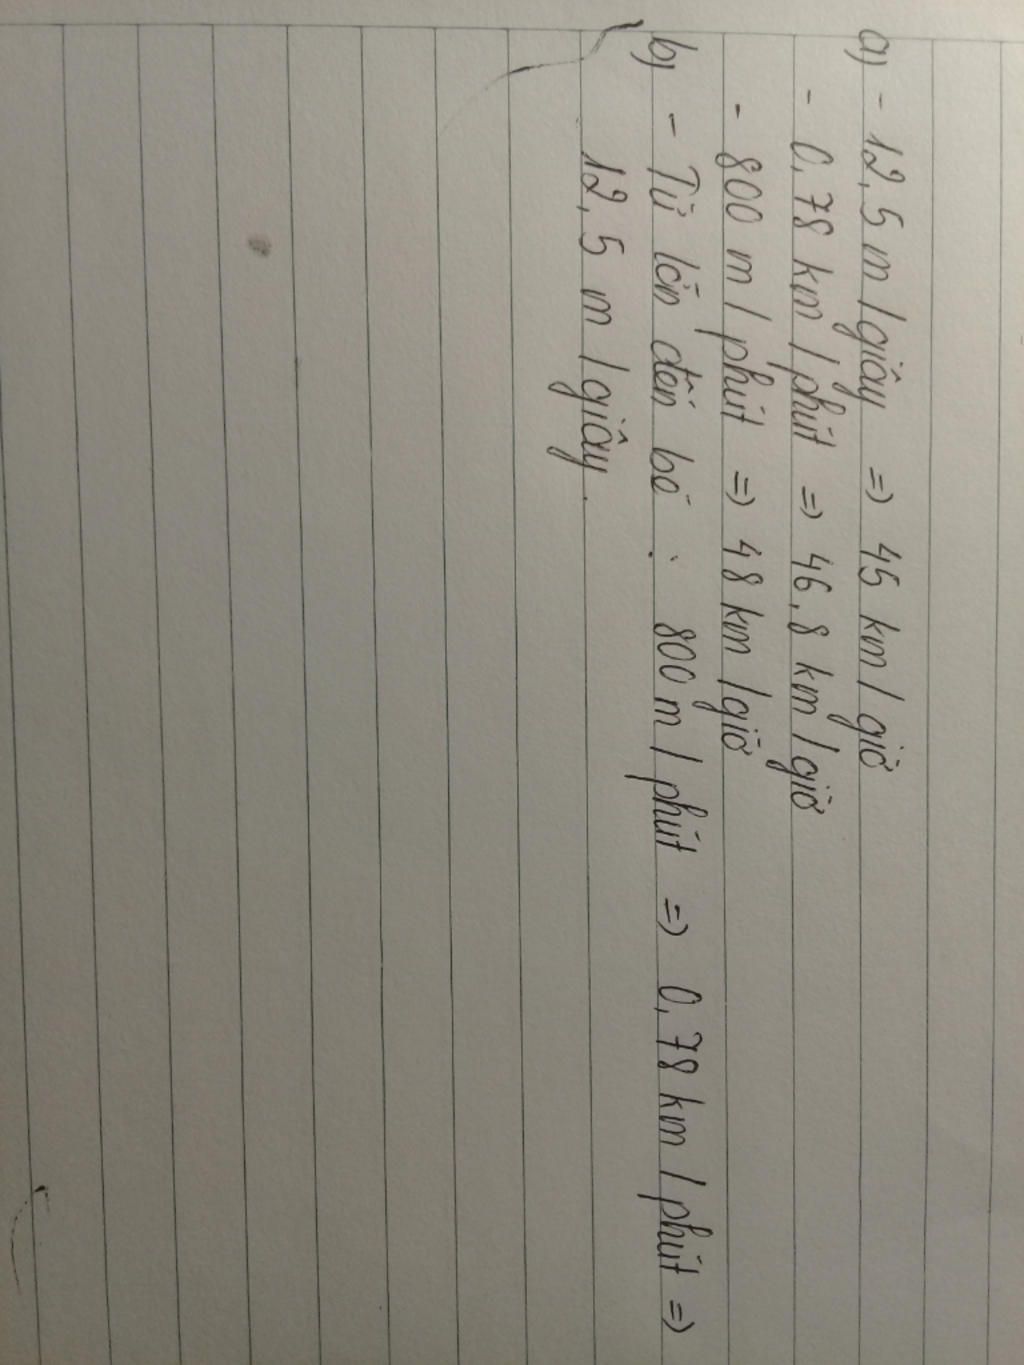 a) - 12,5 m / giây => 45 km / giờ
- 0,78 km / phút => 46,8 km / giờ
- 800 m / phút => 48 km / giờ
b) - Từ lớn đến bé : 800 m / phút => 0,78 km / phút =>
12,5 m / giây.